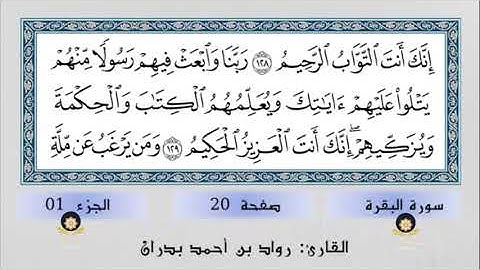 إِنَّكَ أَنتَ ٱلتَّوَّابُ ٱلرَّحِيمُ ١٢٨ رَبَّنَا وَٱبْعَثْ فِيهِمْ رَسُولًا مِّنْهُمْ
يَتْلُوا۟ عَلَيْهِمْ ءَايَـٰتِكَ وَيُعَلِّمُهُمُ ٱلْكِتَـٰبَ وَٱلْحِكْمَةَ
وَيُزَكِّيهِمْ ۚ إِنَّكَ أَنتَ ٱلْعَزِيزُ ٱلْحَكِيمُ ١٢٩ وَمَن يَرْغَبُ عَن مِّلَّةِ
سورة البقرة صفحة 20 الجزء 01
القارئ: رواد بن أحمد بدران